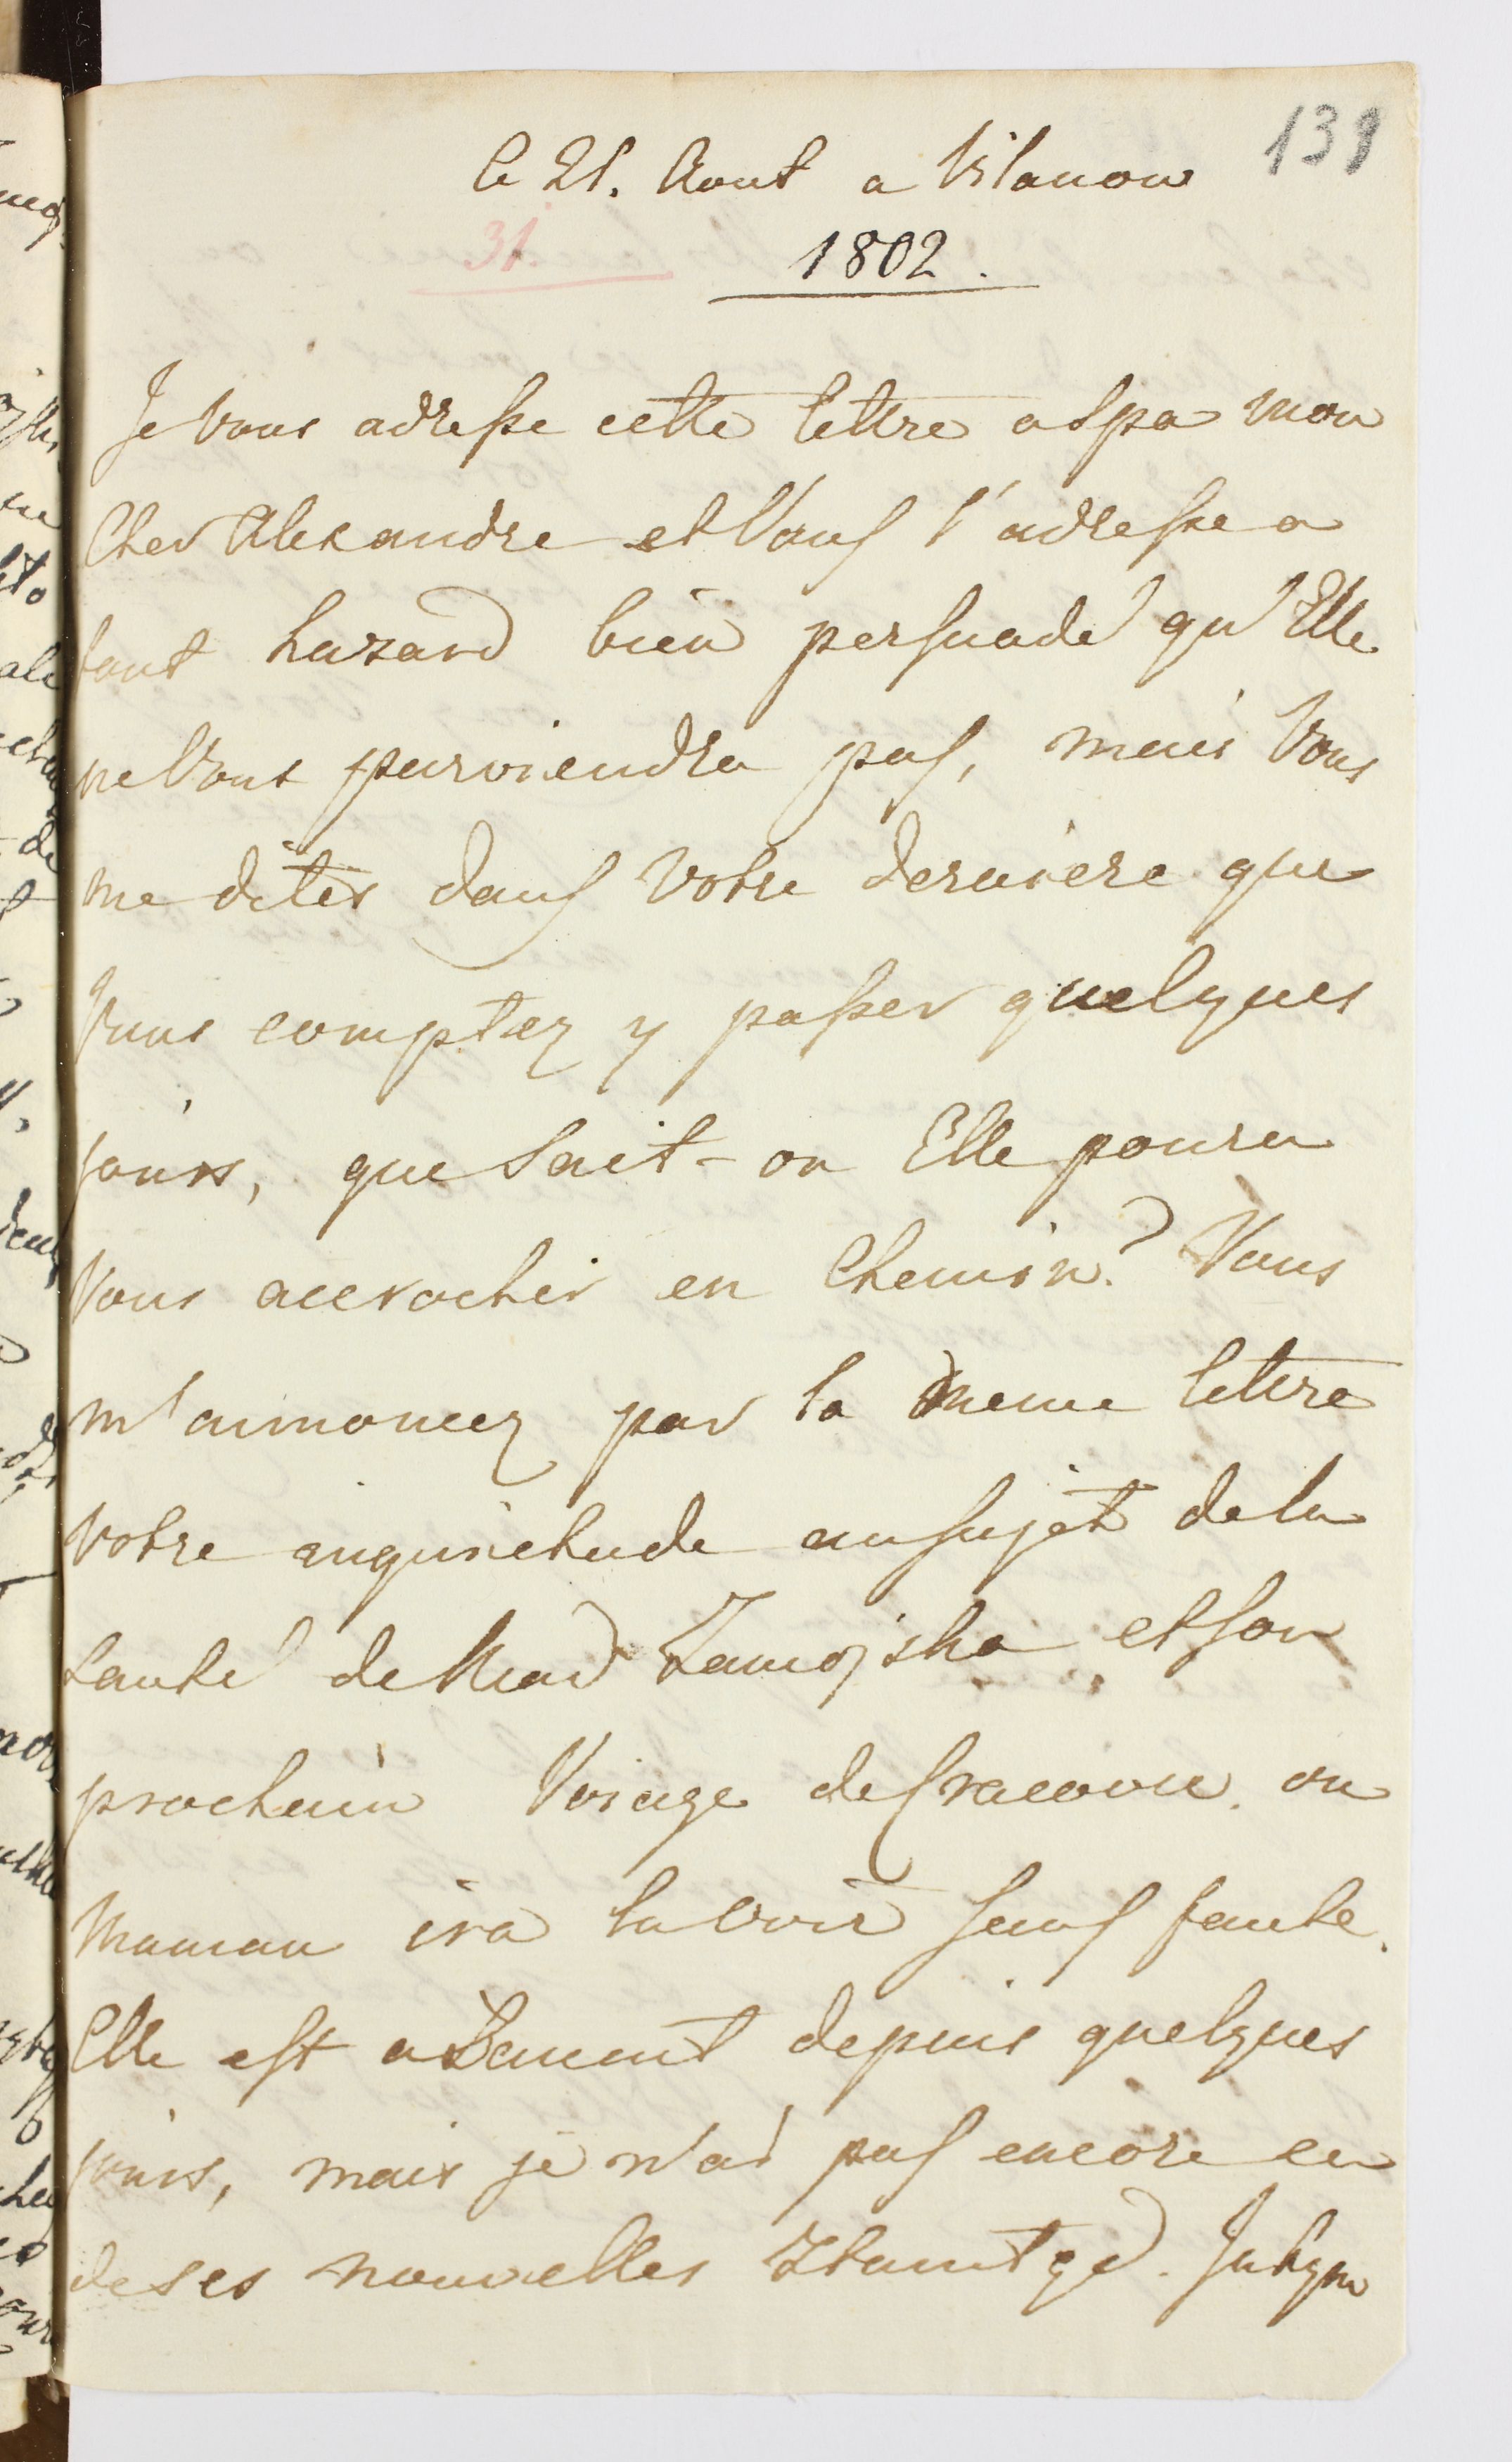 139
le 21. Aout a Vilanow
31.
1802.
Je Vous adresse cette lettre a Spa mon
Cher Alexandre et Vous l'adresse a
tout hazard bien persuadé qu'Elle
ne Vous parviendra pas, mais Vous
me dites dans Votre derniere que
Vous comptez y passer quelques
jours, que Sait-on Elle poura
Vous accrocher en Chemin? Vous
m'annoncez par la meme lettre
Votre inquietude au sujet de la
Santé de Mad Zamojska et son
prochain Voiage de Cracovie. ou
Maman ira la voir sans faute.
Elle est a Lancut depuis quelques
jours, mais je n'ai pas encore eu
de ses nouvelles